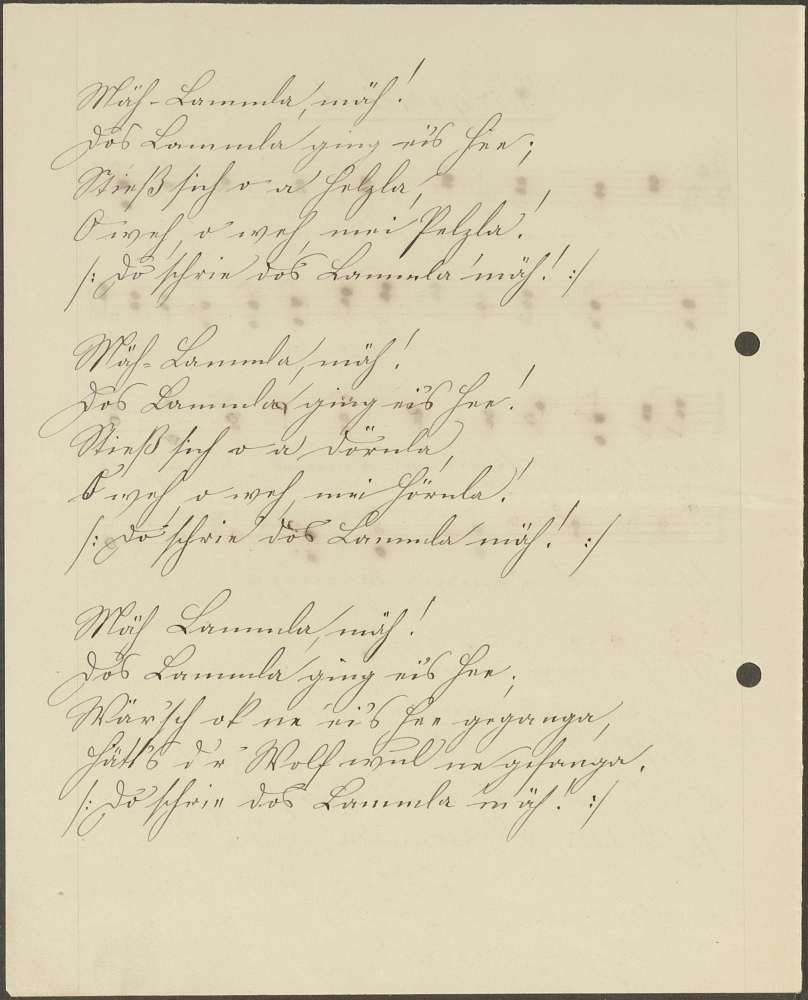 Mäh-Lammla, mäh!
Dos Lammla ging eis Hee;
Stieß sich o a Helzla,
O weh, o weh, mei Pelzla!
/: Do schrie dos Lammla mäh! :/
Mäh-Lammla, mäh!
Dos Lammla ging eis Hee!
Stieß sich o a Dörnla,
O weh, o weh, mei Hörnla!
/: Do schrie dos Lammla mäh! :/
Mäh Lammla, mäh!
Dos Lammla ging eis Hee.
Wär'sch ok ne eis Hee geganga,
Hätt's d'r Wolf wul ne gefanga.
/: Do schrie dos Lammla mäh! :/